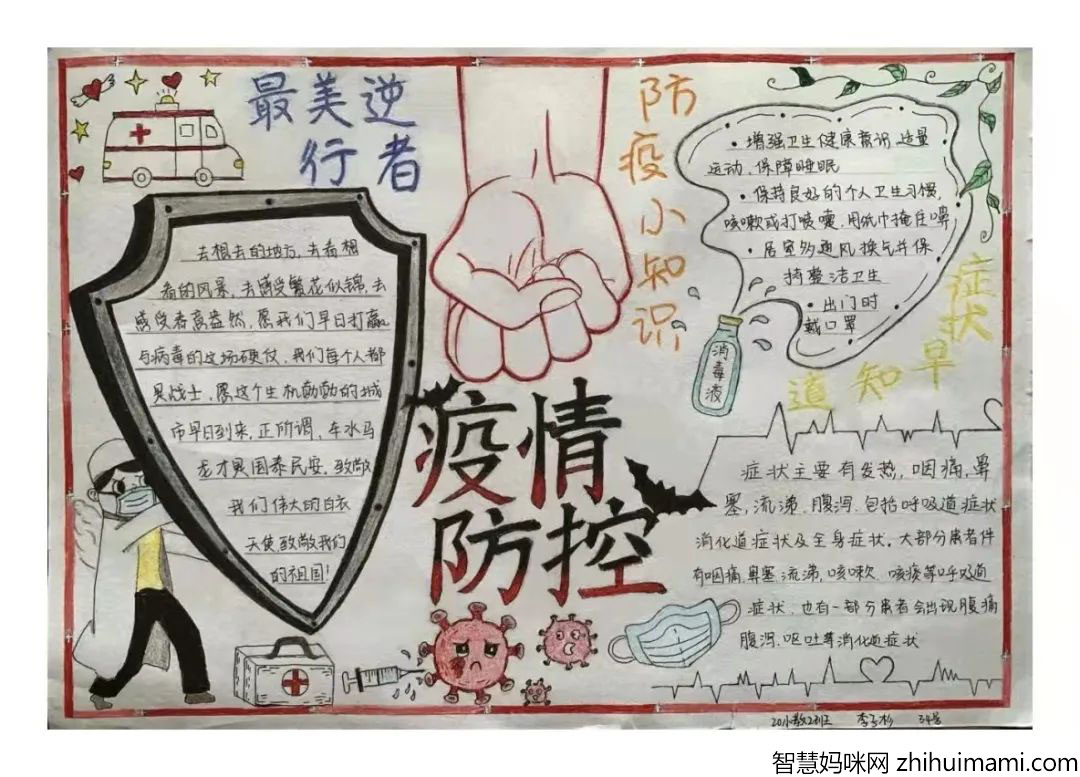 最美逆
行者
去想去的地方,去看想
看的风景,去感受繁花似锦,去
感受春意盎然,愿我们早日打赢
与病毒的这场硬仗,我们每个人都
是战士,愿这个生机勃勃的城
市早日到来,正所谓,车水马
龙才是国泰民安,致敬
我们伟大的白衣
天使,致敬我们
的祖国!
疫情
防控
防疫小知识
·增强卫生健康常识 适量
运动、保障睡眠
·保持良好的个人卫生习惯,
咳嗽或打喷嚏,用纸巾掩住鼻
·居室多通风换气并保
持整洁卫生
·出门时
戴口罩
消毒液
症状
早知道
症状主要有发热,咽痛,鼻
塞,流涕、腹泻、包括呼吸道症状
消化道症状及全身症状,大部分患者伴
有咽痛,鼻塞,流涕,咳嗽、咳痰等呼吸道
症状,也有一部分患者会出现腹痛
腹泻、呕吐等消化道症状
34号
智慧妈咪网 zhihuimami.com